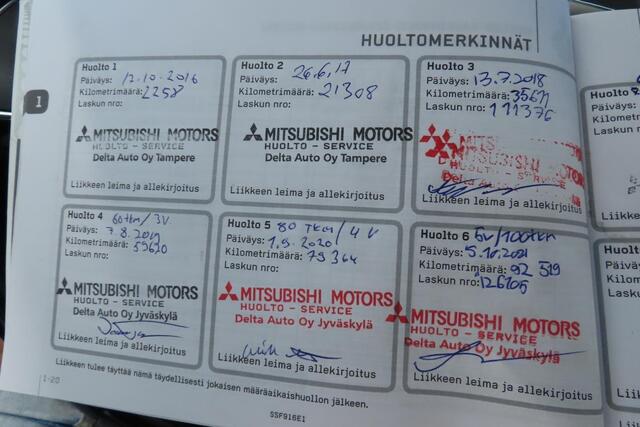 HUOLTOMERKINNÄT
1
Huolto 1
Päiväys: 12.10.2016
Kilometrimäärä: 2258
Laskun nro:
MITSUBISHI MOTORS
HUOLTO - SERVICE
Delta Auto Oy Tampere
Liikkeen leima ja allekirjoitus
Huolto 2
Päiväys: 26.6.17
Kilometrimäärä: 21308
Laskun nro:
MITSUBISHI MOTORS
HUOLTO - SERVICE
Delta Auto Oy Tampere
Liikkeen leima ja allekirjoitus
Huolto 3
Päiväys: 13.7.2018
Kilometrimäärä:
Laskun nro: 111376
MITSUBISHI MOTORS
HUOLTO - SERVICE
Delta Auto Oy
Liikkeen leima ja allekirjoitus
Huolto 4 60tkm/3V
Päiväys: 7.8.2019
Kilometrimäärä: 59620
Laskun nro:
MITSUBISHI MOTORS
HUOLTO - SERVICE
Delta Auto Oy Jyväskylä
Liikkeen leima ja allekirjoitus
Huolto 5 80 TKM/4V
Päiväys: 1.9.2020
Kilometrimäärä: 79364
Laskun nro:
MITSUBISHI MOTORS
HUOLTO - SERVICE
Delta Auto Oy Jyväskylä
Liikkeen leima ja allekirjoitus
Huolto 6 5v/100tkm
Päiväys: 5.10.2021
Kilometrimäärä: 92 519
Laskun nro: 126105
MITSUBISHI MOTORS
HUOLTO - SERVICE
Delta Auto Oy Jyväskylä
Liikkeen leima ja allekirjoitus
Liikkeen tulee täyttää nämä täydellisesti jokaisen määräaikaishuollon jälkeen.
1-20
SSF916E1